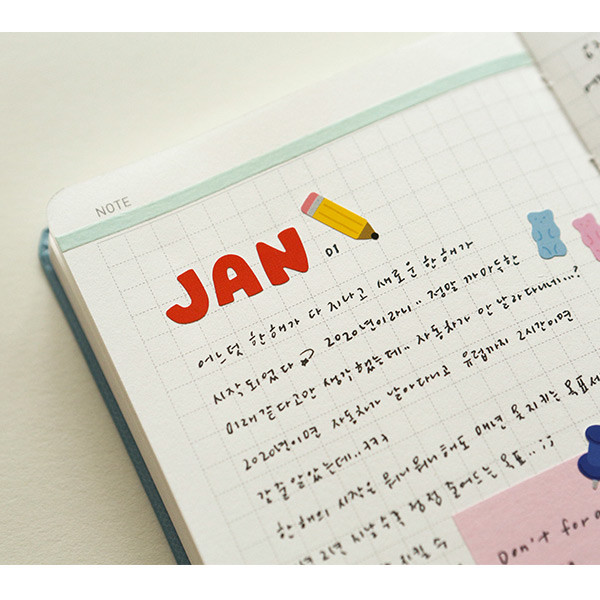 NOTE
JAN 01
어느덧 한해가 다 지나고 새로운 한해가
시작되었다 2020년이라니.. 정말 까마득한
미래같다고만 생각했는데.. 자동차가 안 날라다니네...?
2020년이면 자동차가 날아다니고 유럽까지 2시간이면
갈줄 알았는데..ㅋㅋㅋ
한해의 시작은 뭐니뭐니해도 매년 못지키는 목표세
년 2년 지날수록 점점 줄어드는 목표..;;
지킬 수
Don't for